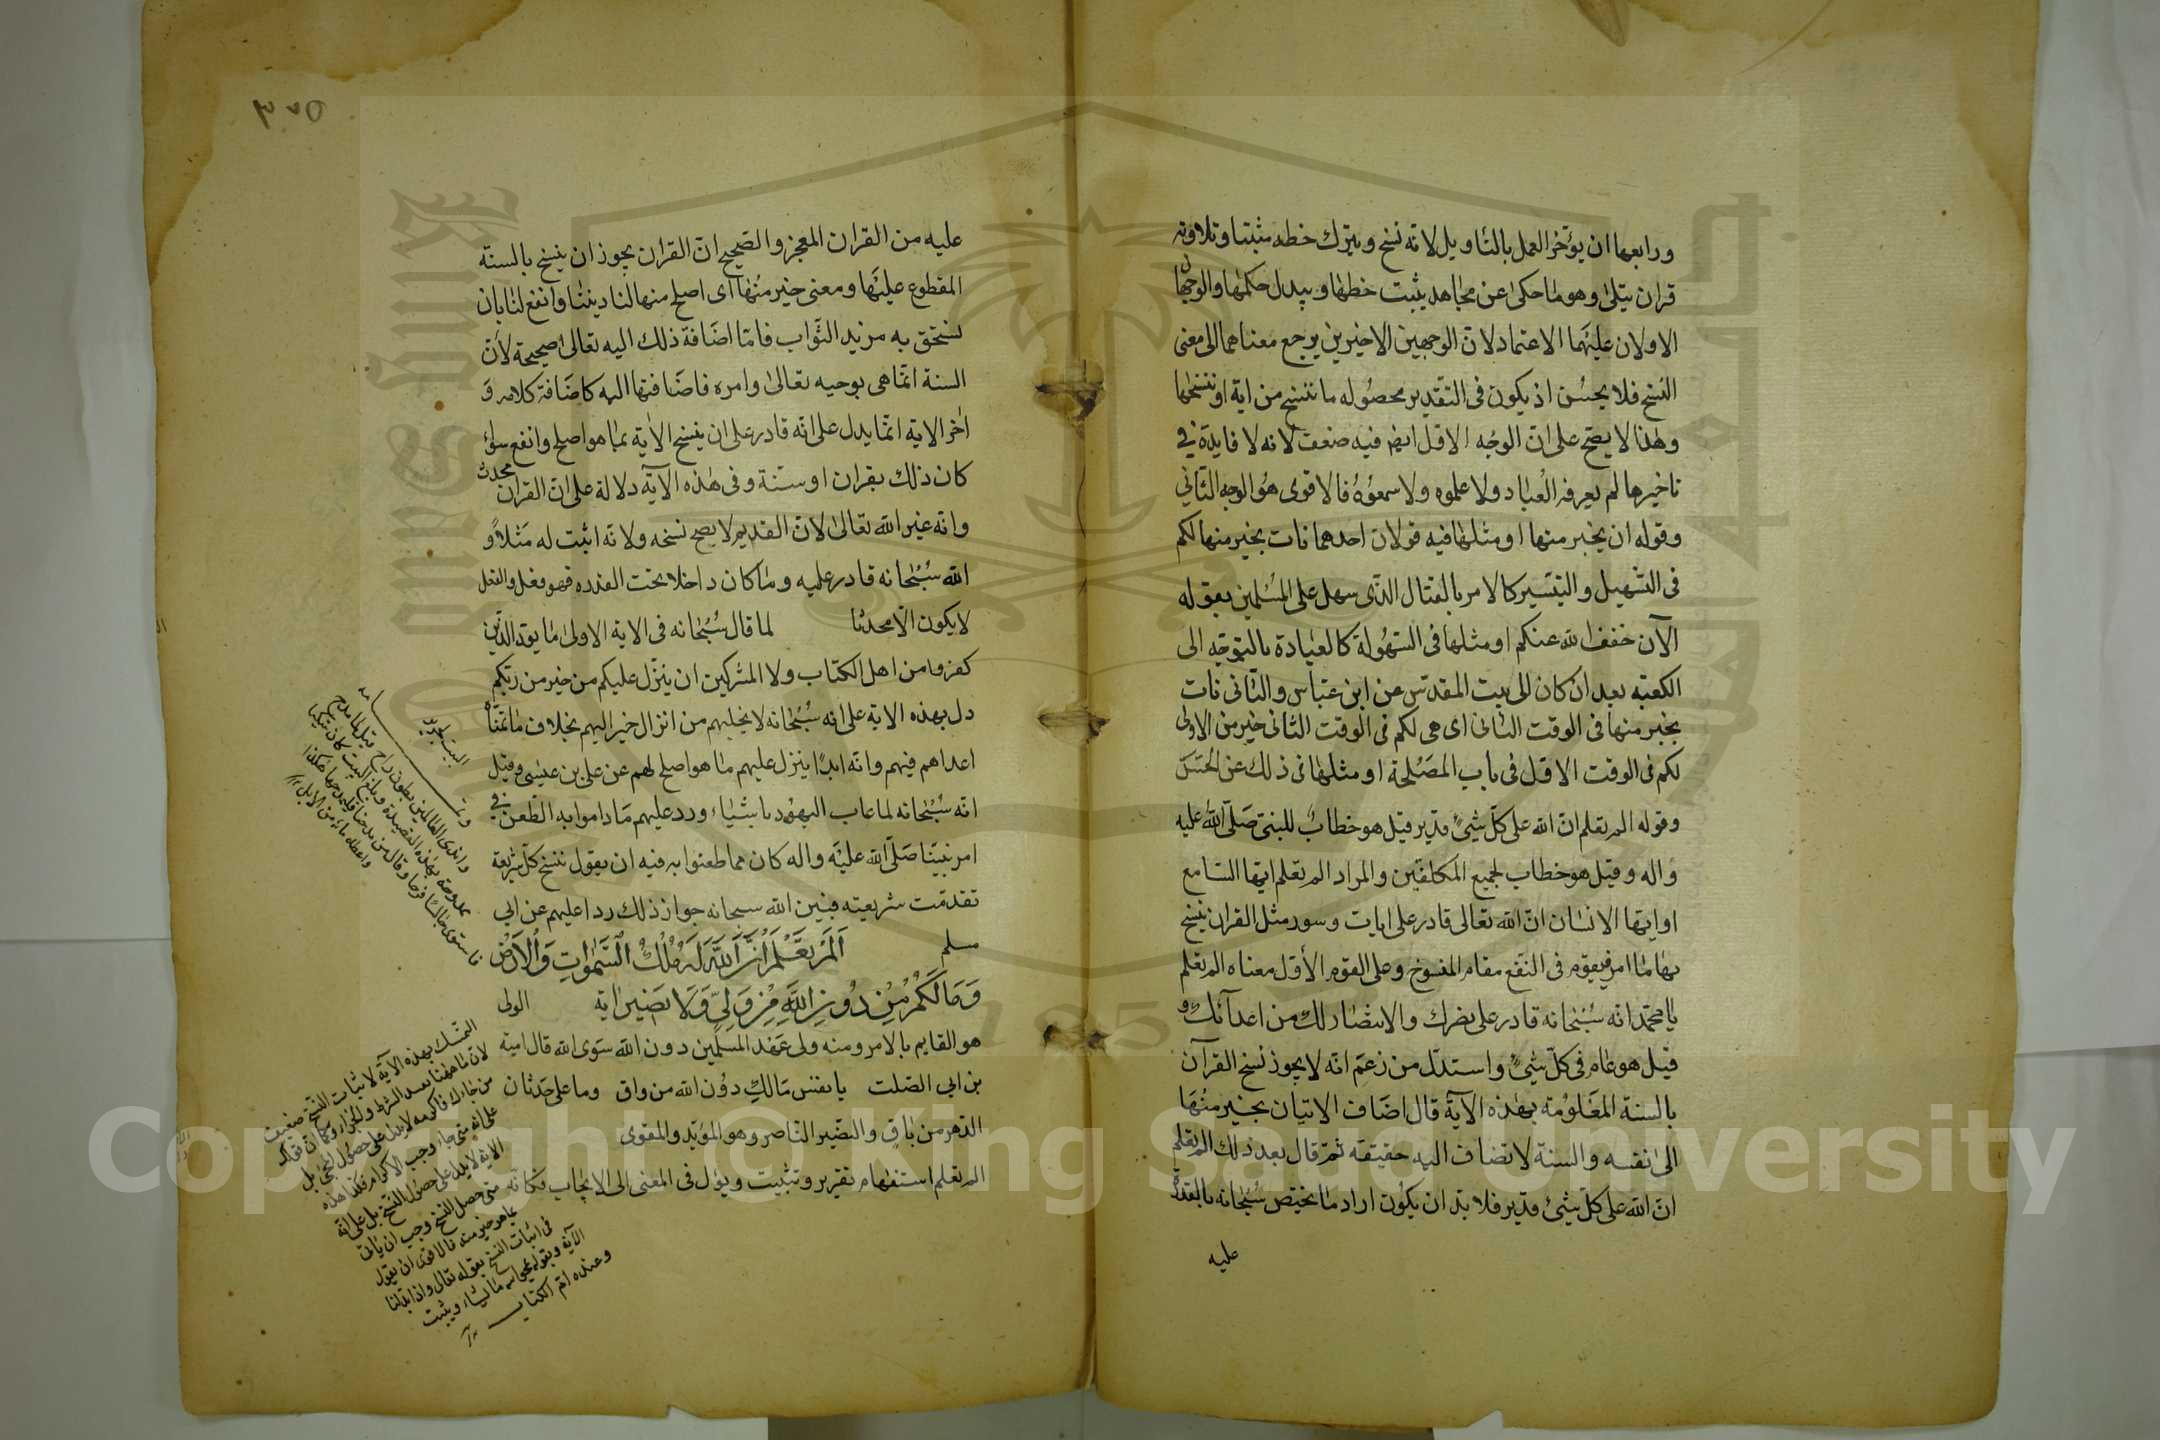 ورابعها ان يؤخر العمل بالتاويل لانه نسخ ويترك خطه مثبتا وتلاوته
قران يتلى وهو ما حكى عن مجاهد يثبت خطها ويبدل حكمها والوجهان
الاولان عليهما الاعتماد لان الوجهين الاخيرين يرجع معناهما الى معنى
النسخ فلا يحسن اذ يكون فى التقدير محصوله ما ننسخ من اية او ننسخها
وهذا لا يصح على ان الوجه الاول ايضا فيه ضعف لانه لا فايدة في
تاخيرها لم يعرفه العباد ولا علموه ولا سمعوه فالاقوى هو الوجه الثاني
وقوله ان بخير منها او مثلها فيه قولان احدهما نات بخير منها لكم
فى التسهيل والتيسير كالامر بالقتال الذى سهل على المسلمين بقوله
الآن خفف الله عنكم او مثلها فى السهولة كالعبادة بالتوجه الى
الكعبة بعد ان كان الى بيت المقدس عن ابن عباس والثانى نات
بخير منها فى الوقت الثانى اى هى لكم فى الوقت الثانى خير من الاولى
لكم فى الوقت الاول فى باب المصلحة او مثلها فى ذلك عن الحسن
وقوله الم تعلم ان الله على كل شئ قدير قيل هو خطاب للنبى صلى الله عليه
واله وقيل هو خطاب لجميع المكلفين والمراد الم تعلم ايها السامع
او ايها الانسان ان الله تعالى قادر على ايات وسور مثل القران ينسخ
بها ما امر فيقوم فى النفع مقام المنسوخ وعلى القول الأول معناه الم تعلم
يا محمد انه سبحانه قادر على نصرك والانتصار لك من اعدائك و
قيل هو عام فى كل شئ واستدل من زعم انه لا يجوز نسخ القرآن
بالسنة المعلومة بهذه الآية قال اضاف الاتيان بخير منها
الى نفسه والسنة لا تضاف اليه حقيقة ثم قال بعد ذلك الم تعلم
ان الله على كل شئ قدير فلا بد ان يكون اراد ما يختص سبحانه بالقدرة
عليه
عليه من القران المعجز والصحيح ان القران يجوز ان ينسخ بالسنة
المقطوع عليها ومعنى خير منها اى اصلح منها لنا ديننا وانفع لنا بان
نستحق به مزيد الثواب فاما اضافة ذلك اليه تعالى صحيحة لان
السنة انما هى بوحيه تعالى وامره فاضافتها اليه كاضافة كلامه و
اخر الاية انما يدل على انه قادر على ان ينسخ الاية بما هو اصلح وانفع سواء
كان ذلك بقران او سنة وفى هذه الآية دلالة على ان القران محدث
وانه غير الله تعالى لان القديم لا يصح نسخه ولانه اثبت له مثلا و
الله سبحانه قادر عليه وما كان داخلا تحت القدره فهو فعل والفعل
لا يكون الا محدثا لما قال سبحانه فى الاية الاولى ما يود الذين
كفروا من اهل الكتاب ولا المشركين ان ينزل عليكم من خير من ربكم
دل بهذه الاية على انه سبحانه لا يخليهم من انزال خير اليهم بخلاف ما تمناه
اعداهم فيهم وانه ابدا ينزل عليهم ما هو اصلح لهم عن على بن عيسى وقيل
انه سبحانه لما عاب اليهود باشياء ورد عليهم ما داموا به الطعن في
امر نبينا صلى الله عليه واله كان مما طعنوا به فيه ان يقول بنسخ كل شريعة
تقدمت شريعته فبين الله سبحانه جواز ذلك ردا عليهم عن ابى
مسلم اَلَمْ تَعْلَمْ اَنَّ اللّٰهَ لَهُ مُلْكُ السَّمٰوَاتِ وَالْاَرْضِ
وَمَا لَكُمْ مِنْ دُونِ اللّٰهِ مِنْ وَلِىٍّ وَلَا نَصِيرٍ اية الولى
هو القايم بالامر ومنه ولى عهد المسلمين دون الله سوى الله قال امية
بن ابى الصلت يا نفس مالك دون الله من واق وما على حدثان
الدهر من باق والنصير الناصر وهو المؤيد والمقوى
الم تعلم استفهام تقرير وتثبيت ويؤل فى المعنى الى الايجاب فكانه
التمسك بهذه الآية لاثبات النسخ ضعيف
لان ما ههنا يفيد الشرط والجزاء وكما ان قولك
من جاءك فاكرمه لا يدل على حصول المجئ بل
على انه متى جاء وجب الاكرام فكذا هذه
الآية لا يدل على حصول النسخ بل على انه
متى حصل النسخ وجب ان ياتى
بما هو خير منه فالاقوى ان يعول
فى اثبات النسخ بقوله تعالى واذا بدلنا
الآية وبقوله يمحوا الله ما يشاء ويثبت
وعنده ام الكتاب